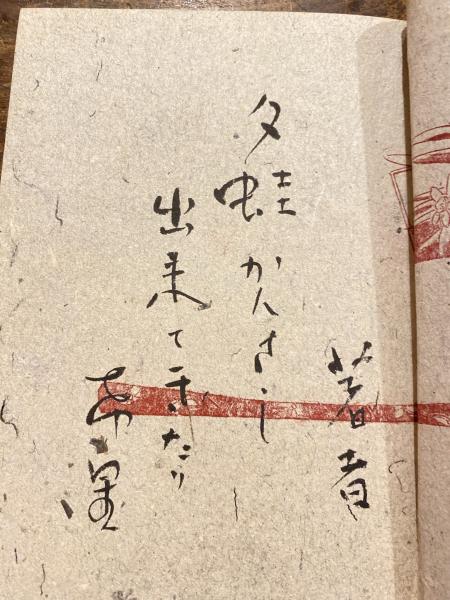 著者
夕蛙かんさし
出来てきたり